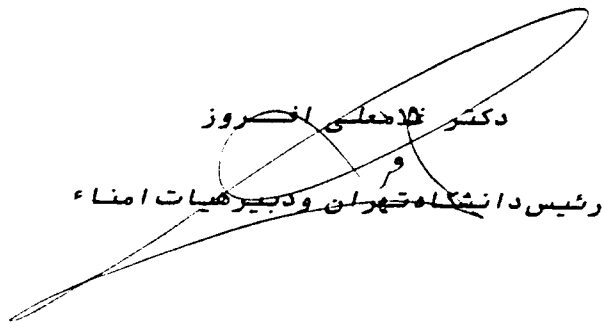 دکتر غلامعلی افروز
رئیس دانشگاه تهران و دبیر هیات امناء